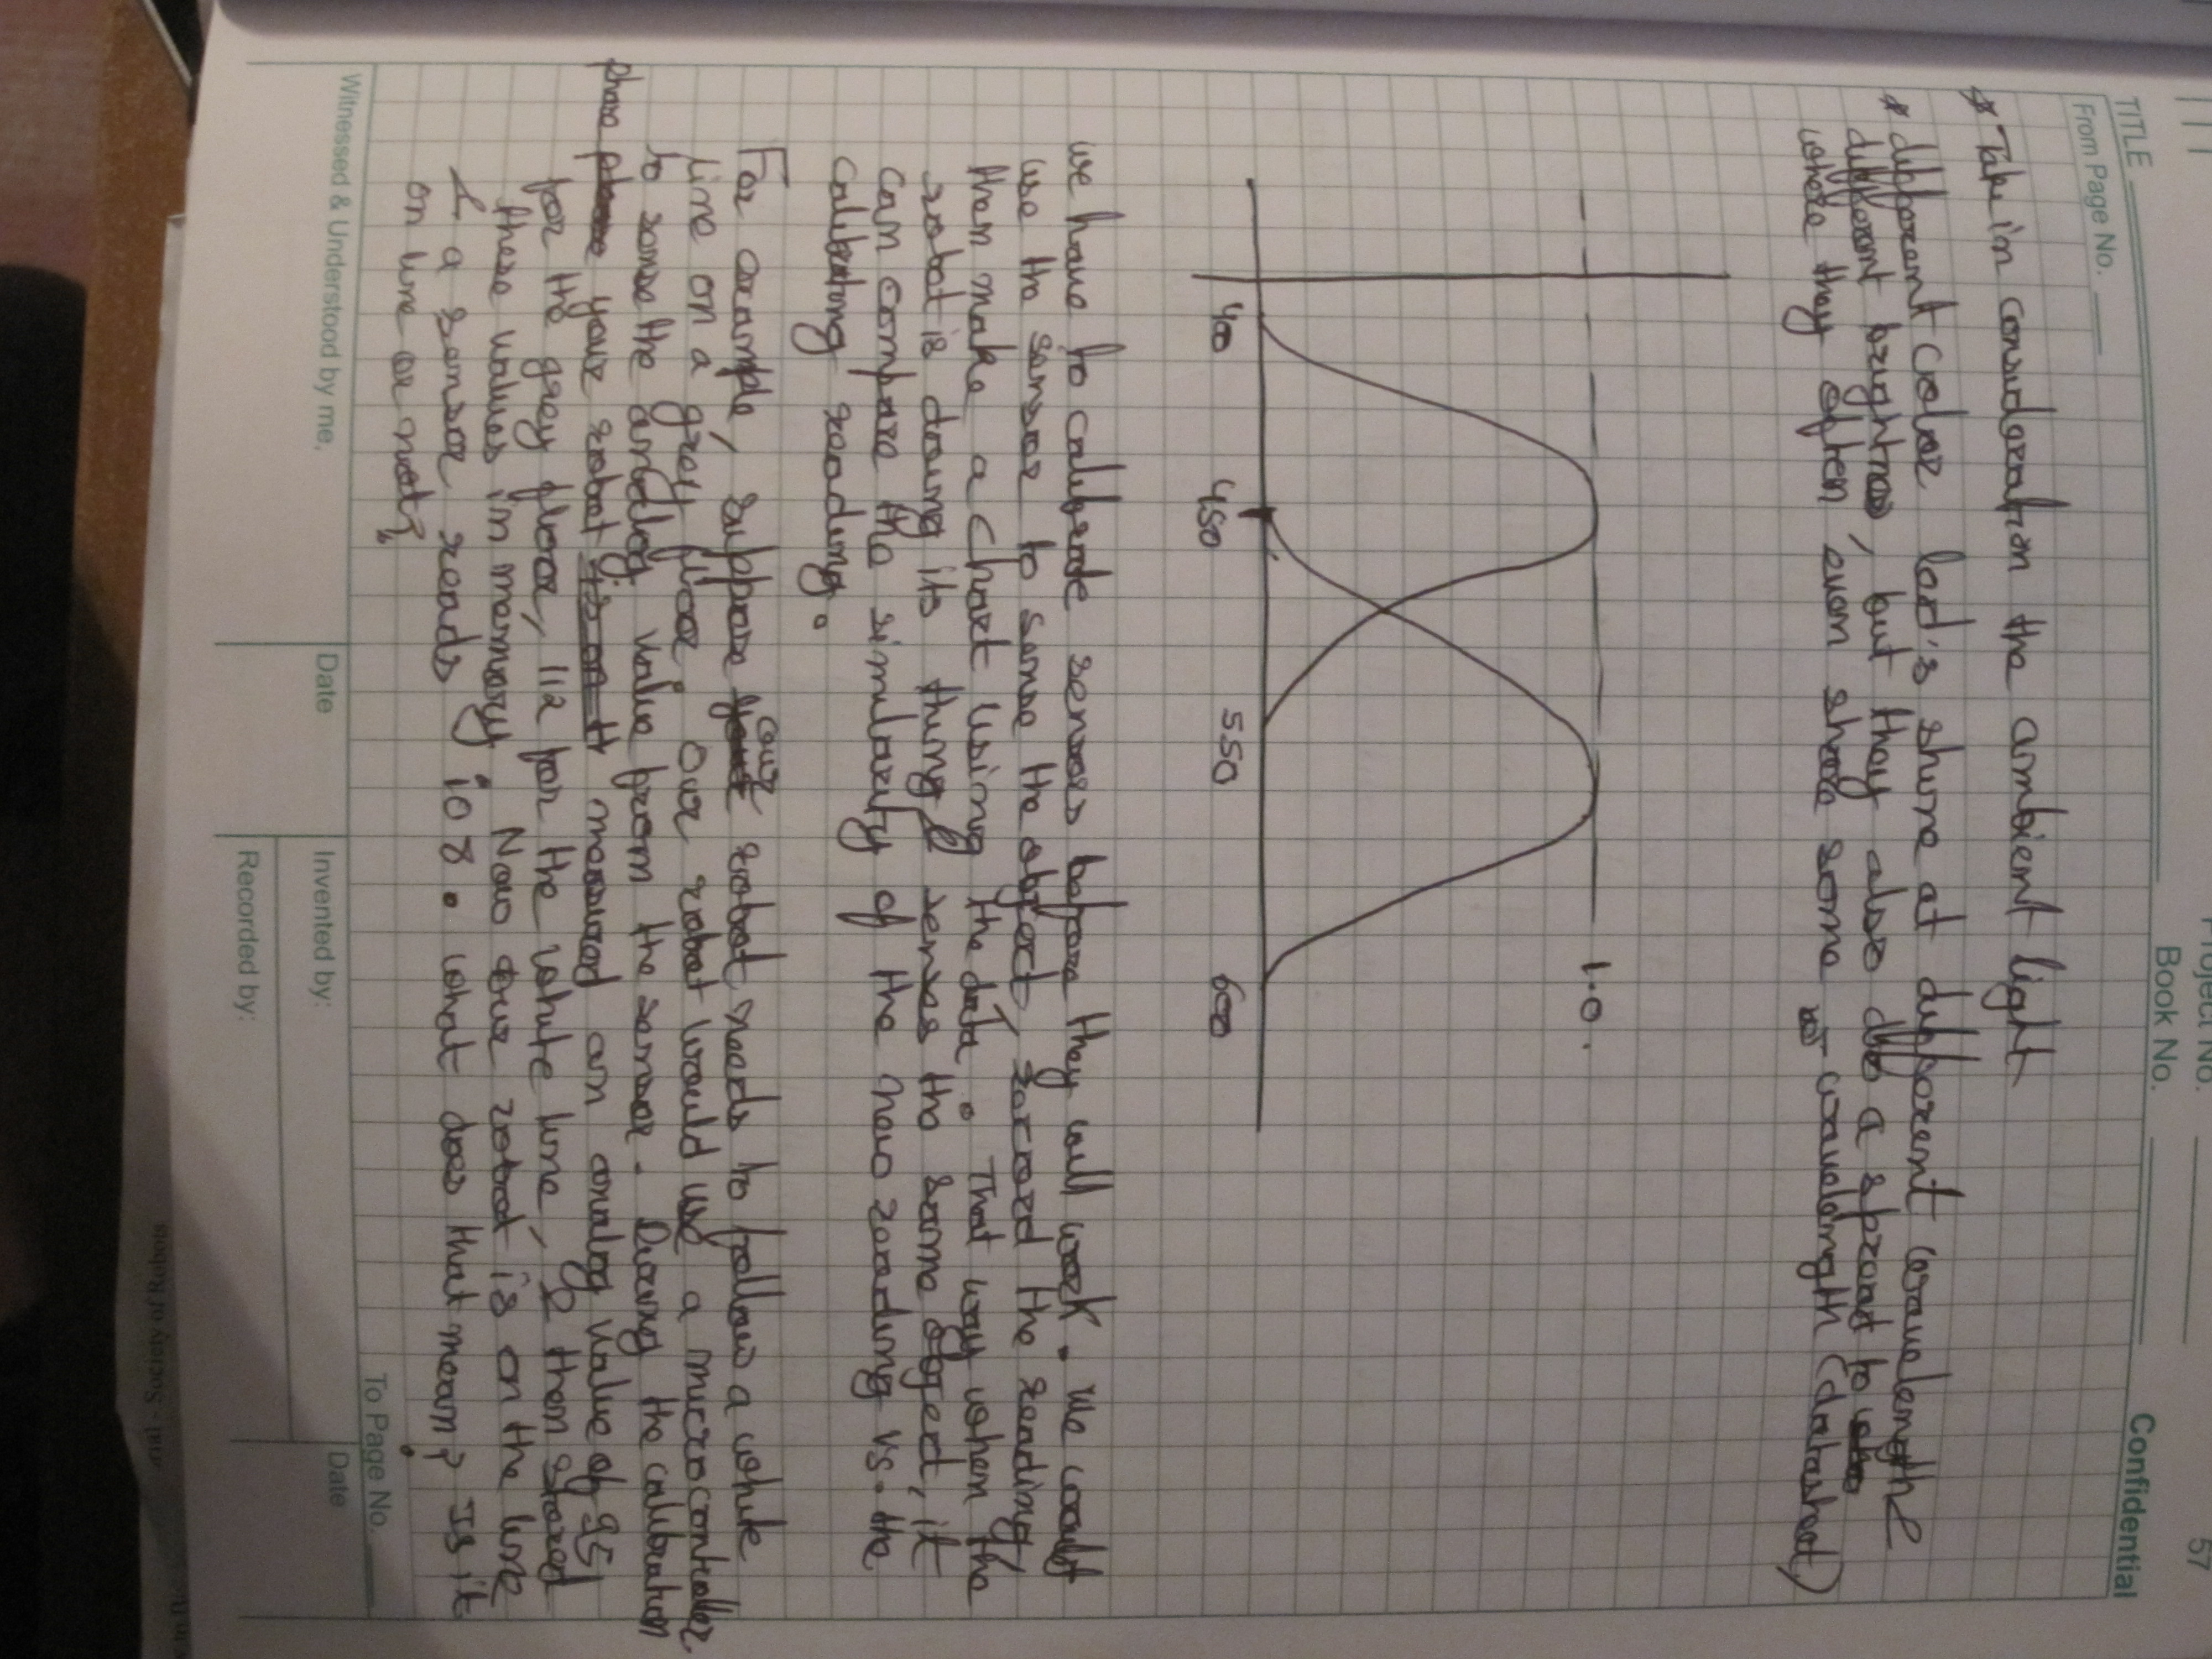 57
Project No.
Book No.
Confidential
TITLE
From Page No.
* Take in consideration the ambient light
* different color led's shine at different wavelengths &
different brightness, but they also do a spread to
where they often, even share some wavelength (datasheet)
1.0
400 450 550 600
we have to calibrate sensors before they will work. We would
use the sensor to sense the object, record the reading,
then make a chart using the data. That way when the
robot is doing its thing & senses the same object, it
can compare the similarity of the new reading vs. the
calibrating reading.
For example, suppose our robot needs to follow a white
line on a grey floor. Our robot would use a microcontroller
to sense the analog value from the sensor. During the calibration
phase your robot measured an analog value of 95
for the grey floor, 112 for the white line, & then stored
these values in memory. Now our robot is on the line
& a sensor reads 108. What does that mean? Is it
on line or not?
To Page No.
Witnessed & Understood by me,
Date
Invented by:
Date
Recorded by:
rial - Society of Robots